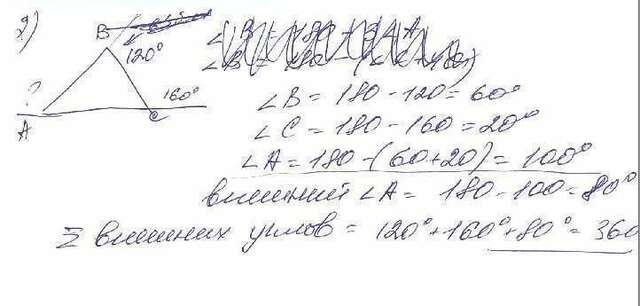 2)
B
120°
?
160°
A
C
∠B = 180 - 120 = 60°
∠C = 180 - 160 = 20°
∠A = 180 - (60 + 20) = 100°
внешний ∠A = 180 - 100 = 80°
Σ внешних углов = 120° + 160° + 80° = 360